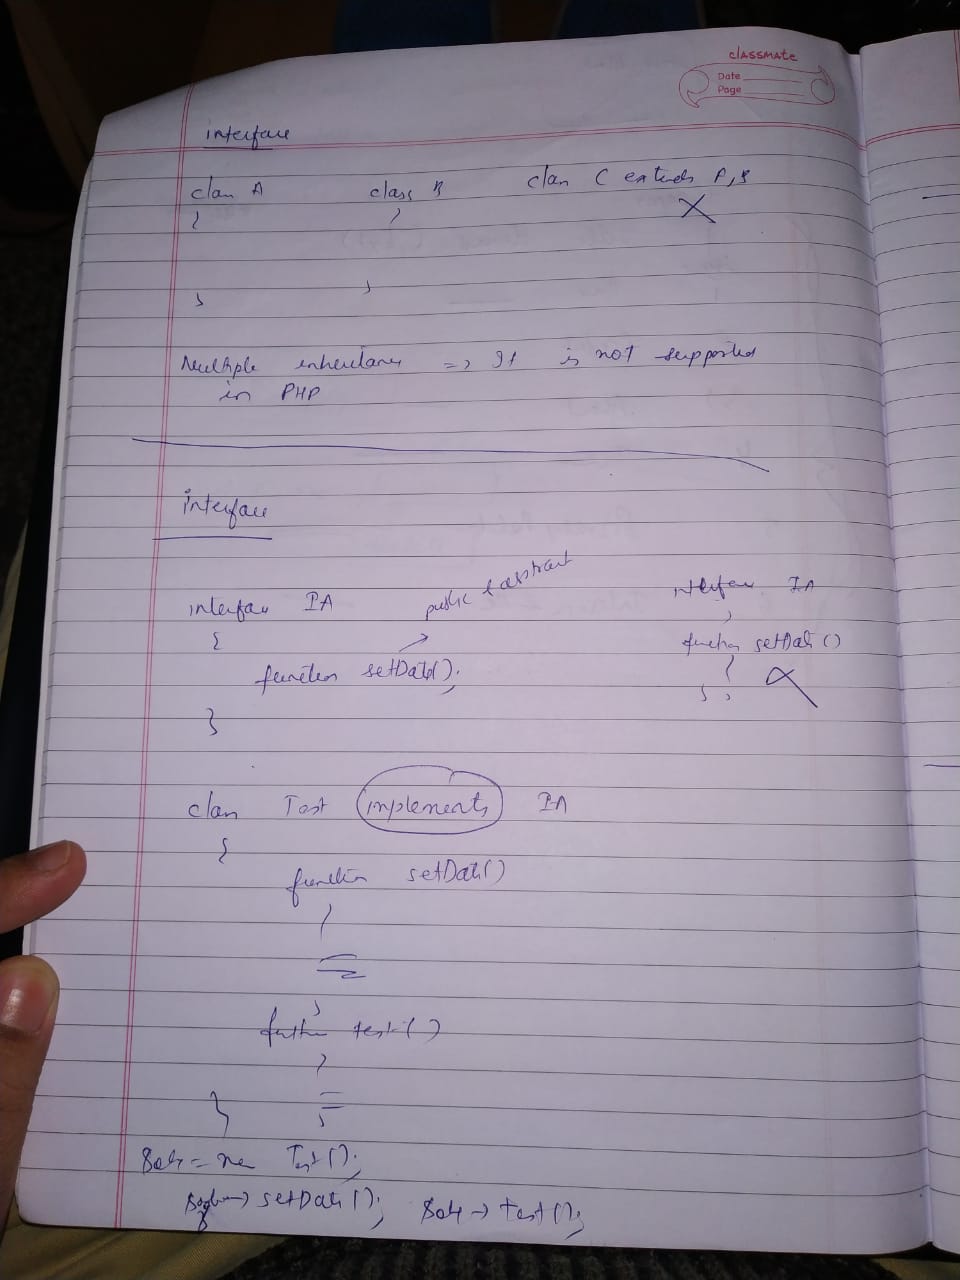 classmate
Date
Page
interface
class A class B class C extends A, B
{ {
} }
Multiple inheritance => It is not supported
in PHP
interface
public & abstract
interface IA interface IA
{ {
function setData(); function setData()
{
} } }
class Test implements IA
{
function setData()
{
}
function test()
{
}
}
$obj = new Test();
$obj -> setData(); $obj -> test();